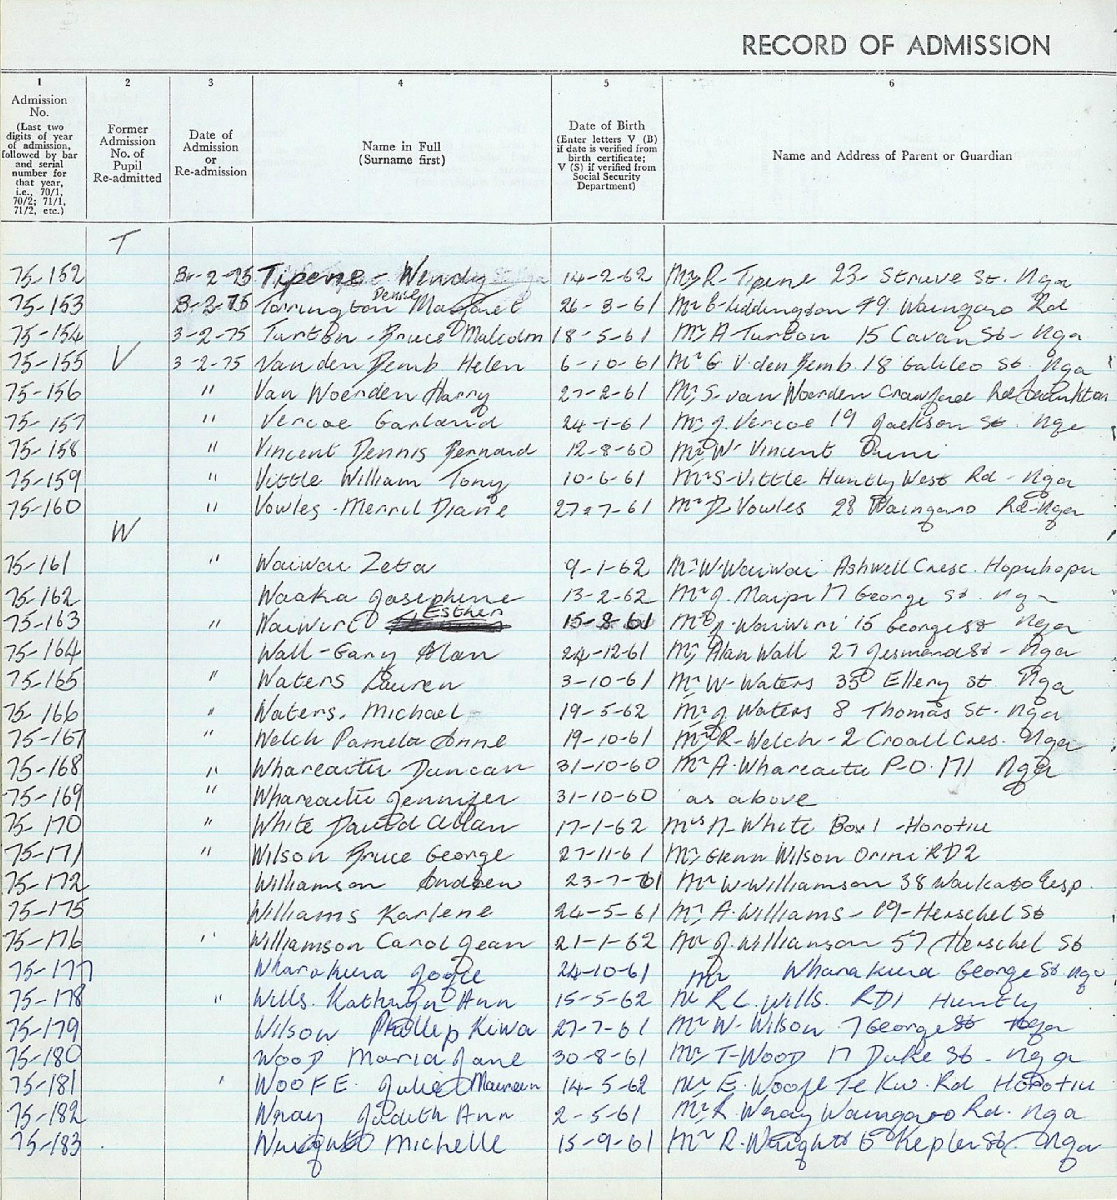 RECORD OF ADMISSION
1 2 3 4 5 6
Admission No. (Last two digits of year of admission, followed by bar and serial number for that year, i.e., 70/1, 70/2; 71/1, 71/2, etc.)
Former Admission No. of Pupil Re-admitted
Date of Admission or Re-admission
Name in Full (Surname first)
Date of Birth (Enter letters V (B) if date is verified from birth certificate; V (S) if verified from Social Security Department)
Name and Address of Parent or Guardian
T
75-152 3-2-75 Tipene - Wendy 14-2-62 Mr R- Tipene 23- Struve St. Nga
75-153 3-2-75 Torrington Denise Margaret 26-3-61 Mr B- Liddington 49 Waingaro Rd
75-154 3-2-75 Turton - Bruce Malcolm 18-5-61 Mr A Turton 15 Cavan St - Nga
75-155 V 3-2-75 Van den Bemb Helen 6-10-61 Mr G V-den Bemb. 18 Galileo St. Nga
75-156 " Van Woerden Harry 27-2-61 Mr S- van Woerden Crawford Rd
75-157 " Vercoe Garland 24-1-61 Mr J. Vercoe 19 Jackson St. Nga
75-158 " Vincent Dennis Bernard 12-8-60 Mr W- Vincent Orini
75-159 " Vittle William Tony 10-6-61 Mr S- Vittle Huntly West Rd - Nga
75-160 " Vowles - Merril Diane 27-7-61 Mr D- Vowles 28 Waingaro Rd - Nga
W
75-161 " Waiwai Zeta 9-1-62 Mr W- Waiwai Ashwell Cresc. Hopuhopu
75-162 Waaka Josephine 13-2-62 Mr J. Maipi 17 George St. Nga
75-163 " Waiwiri Esther 15-8-61 Mr J. Waiwiri 15 George St Nga
75-164 Wall - Gary Alan 24-12-61 Mr Alan Wall 27 Jesmond St - Nga
75-165 " Waters Lauren 3-10-61 Mr W- Waters 35 Ellery St Nga
75-166 " Waters. Michael 19-5-62 Mr J Waters 8 Thomas St. Nga
75-167 " Welch Pamela Anne 19-10-61 Mr R- Welch - 2 Croall Cres. Nga
75-168 " Whareaitu Duncan 31-10-60 Mr A. Whareaitu P-O. 171 Nga
75-169 " Whareaitu Jennifer 31-10-60 as above
75-170 " White David Allan 17-1-62 Mrs N- White Box 1 - Horotiu
75-171 " Wilson Bruce George 27-11-61 Mr Glenn Wilson Orini RD2
75-172 Williamson Andrew 23-7-61 Mr W- Williamson 38 Waikato Esp.
75-175 Williams Karlene 24-5-61 Mr A- Williams - 19 - Herschel St
75-176 " Williamson Carol Jean 21-1-62 Mr J. Williamson 57 Herschel St
75-177 Wharakura 24-10-61 Mr Wharakura George St. Nga
75-178 " Wills. Kathryn Ann 15-5-62 Mr R L. Wills. RD1 Huntly
75-179 Wilson Phillip Kiwa 27-7-61 Mr W- Wilson 7 George St Nga
75-180 Wood Maria Jane 30-8-61 Mr T- Wood 17 Duke St - Nga
75-181 " WOOFE. Julie Maureen 14-5-62 Mr E. Woofe Te Kw. Rd Horotiu
75-182 Wray Judith Ann 2-5-61 Mr R Wray Waingaro Rd. Nga
75-183 Michelle 15-9-61 Mr R. Wright 6 Kepler St. Nga